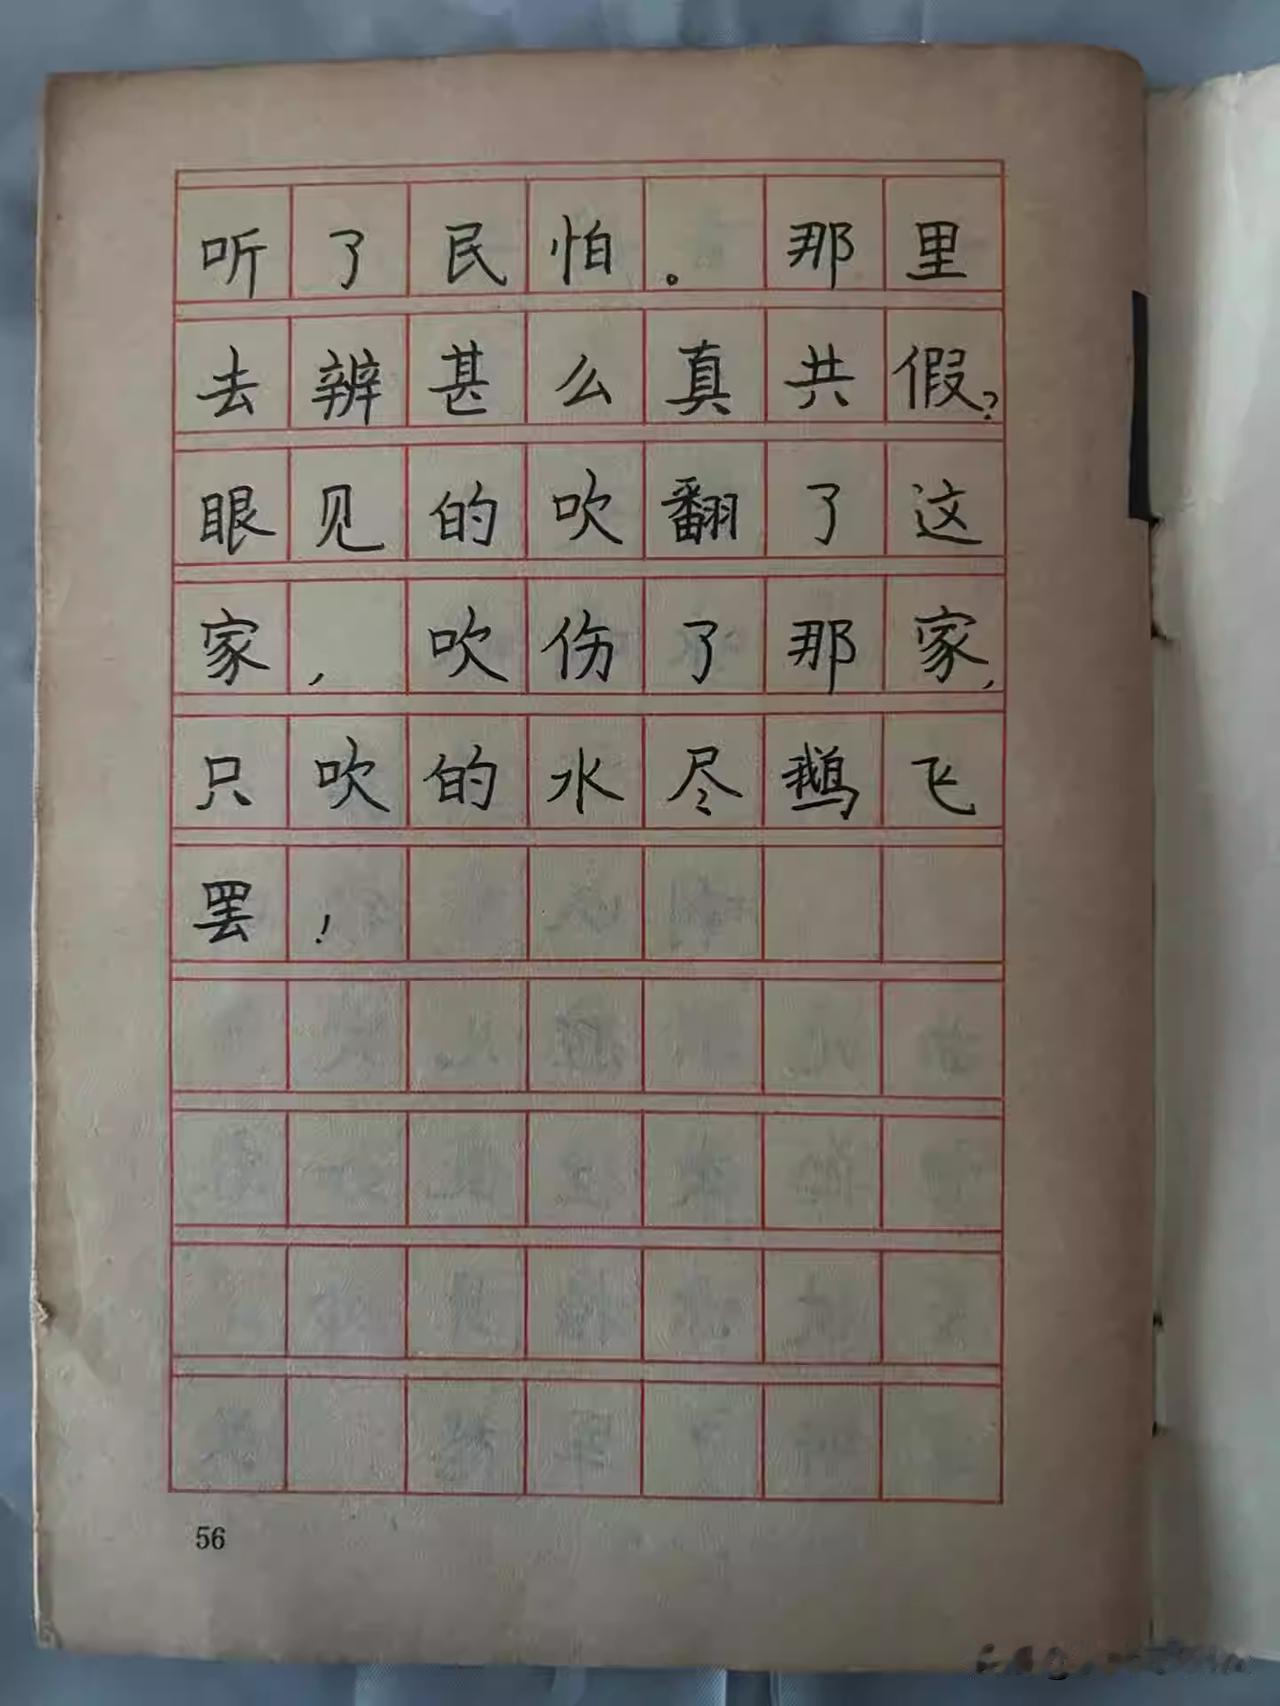 听了民怕。那里
去辨甚么真共假?
眼见的吹翻了这
家,吹伤了那家,
只吹的水尽鹅飞
罢!
56